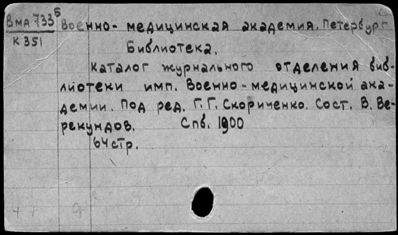 ВМА 733⁵ Военно-медицинская академия. Петербург
К 351
Библиотека.
Каталог журнального отделения биб-
лиотеки имп. Военно-медицинской ака-
демии. Под ред. Г. Г. Скориченко. Сост. В. Ве-
рекундов. Спб. 1900
64 стр.